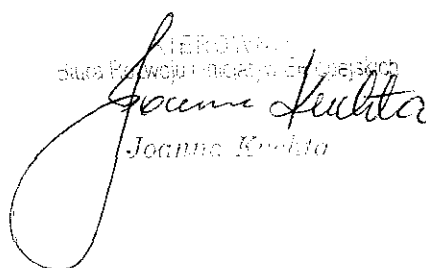 KIEROWNIK
Biura Rozwoju i Inicjatyw Europejskich
Joanna Kuchta
Joanna Kuchta